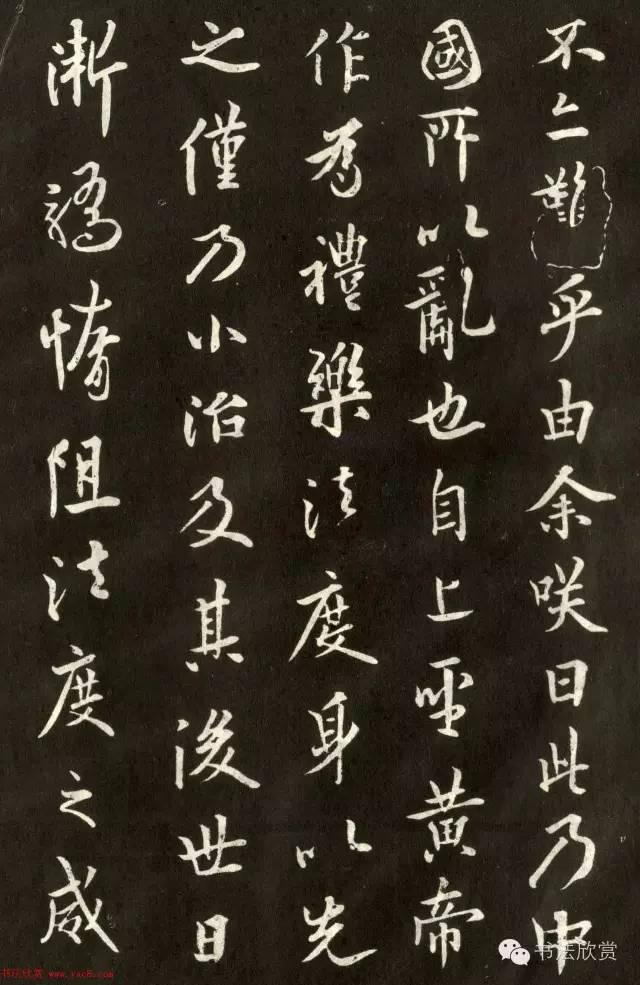 不亦難乎由余咲曰此乃中
國所以亂也自上聖黄帝
作為禮樂法度身以先
之僅乃小治及其後世日
漸驕惰阻法度之威
书法欣赏
书法欣赏 www.yac8.com